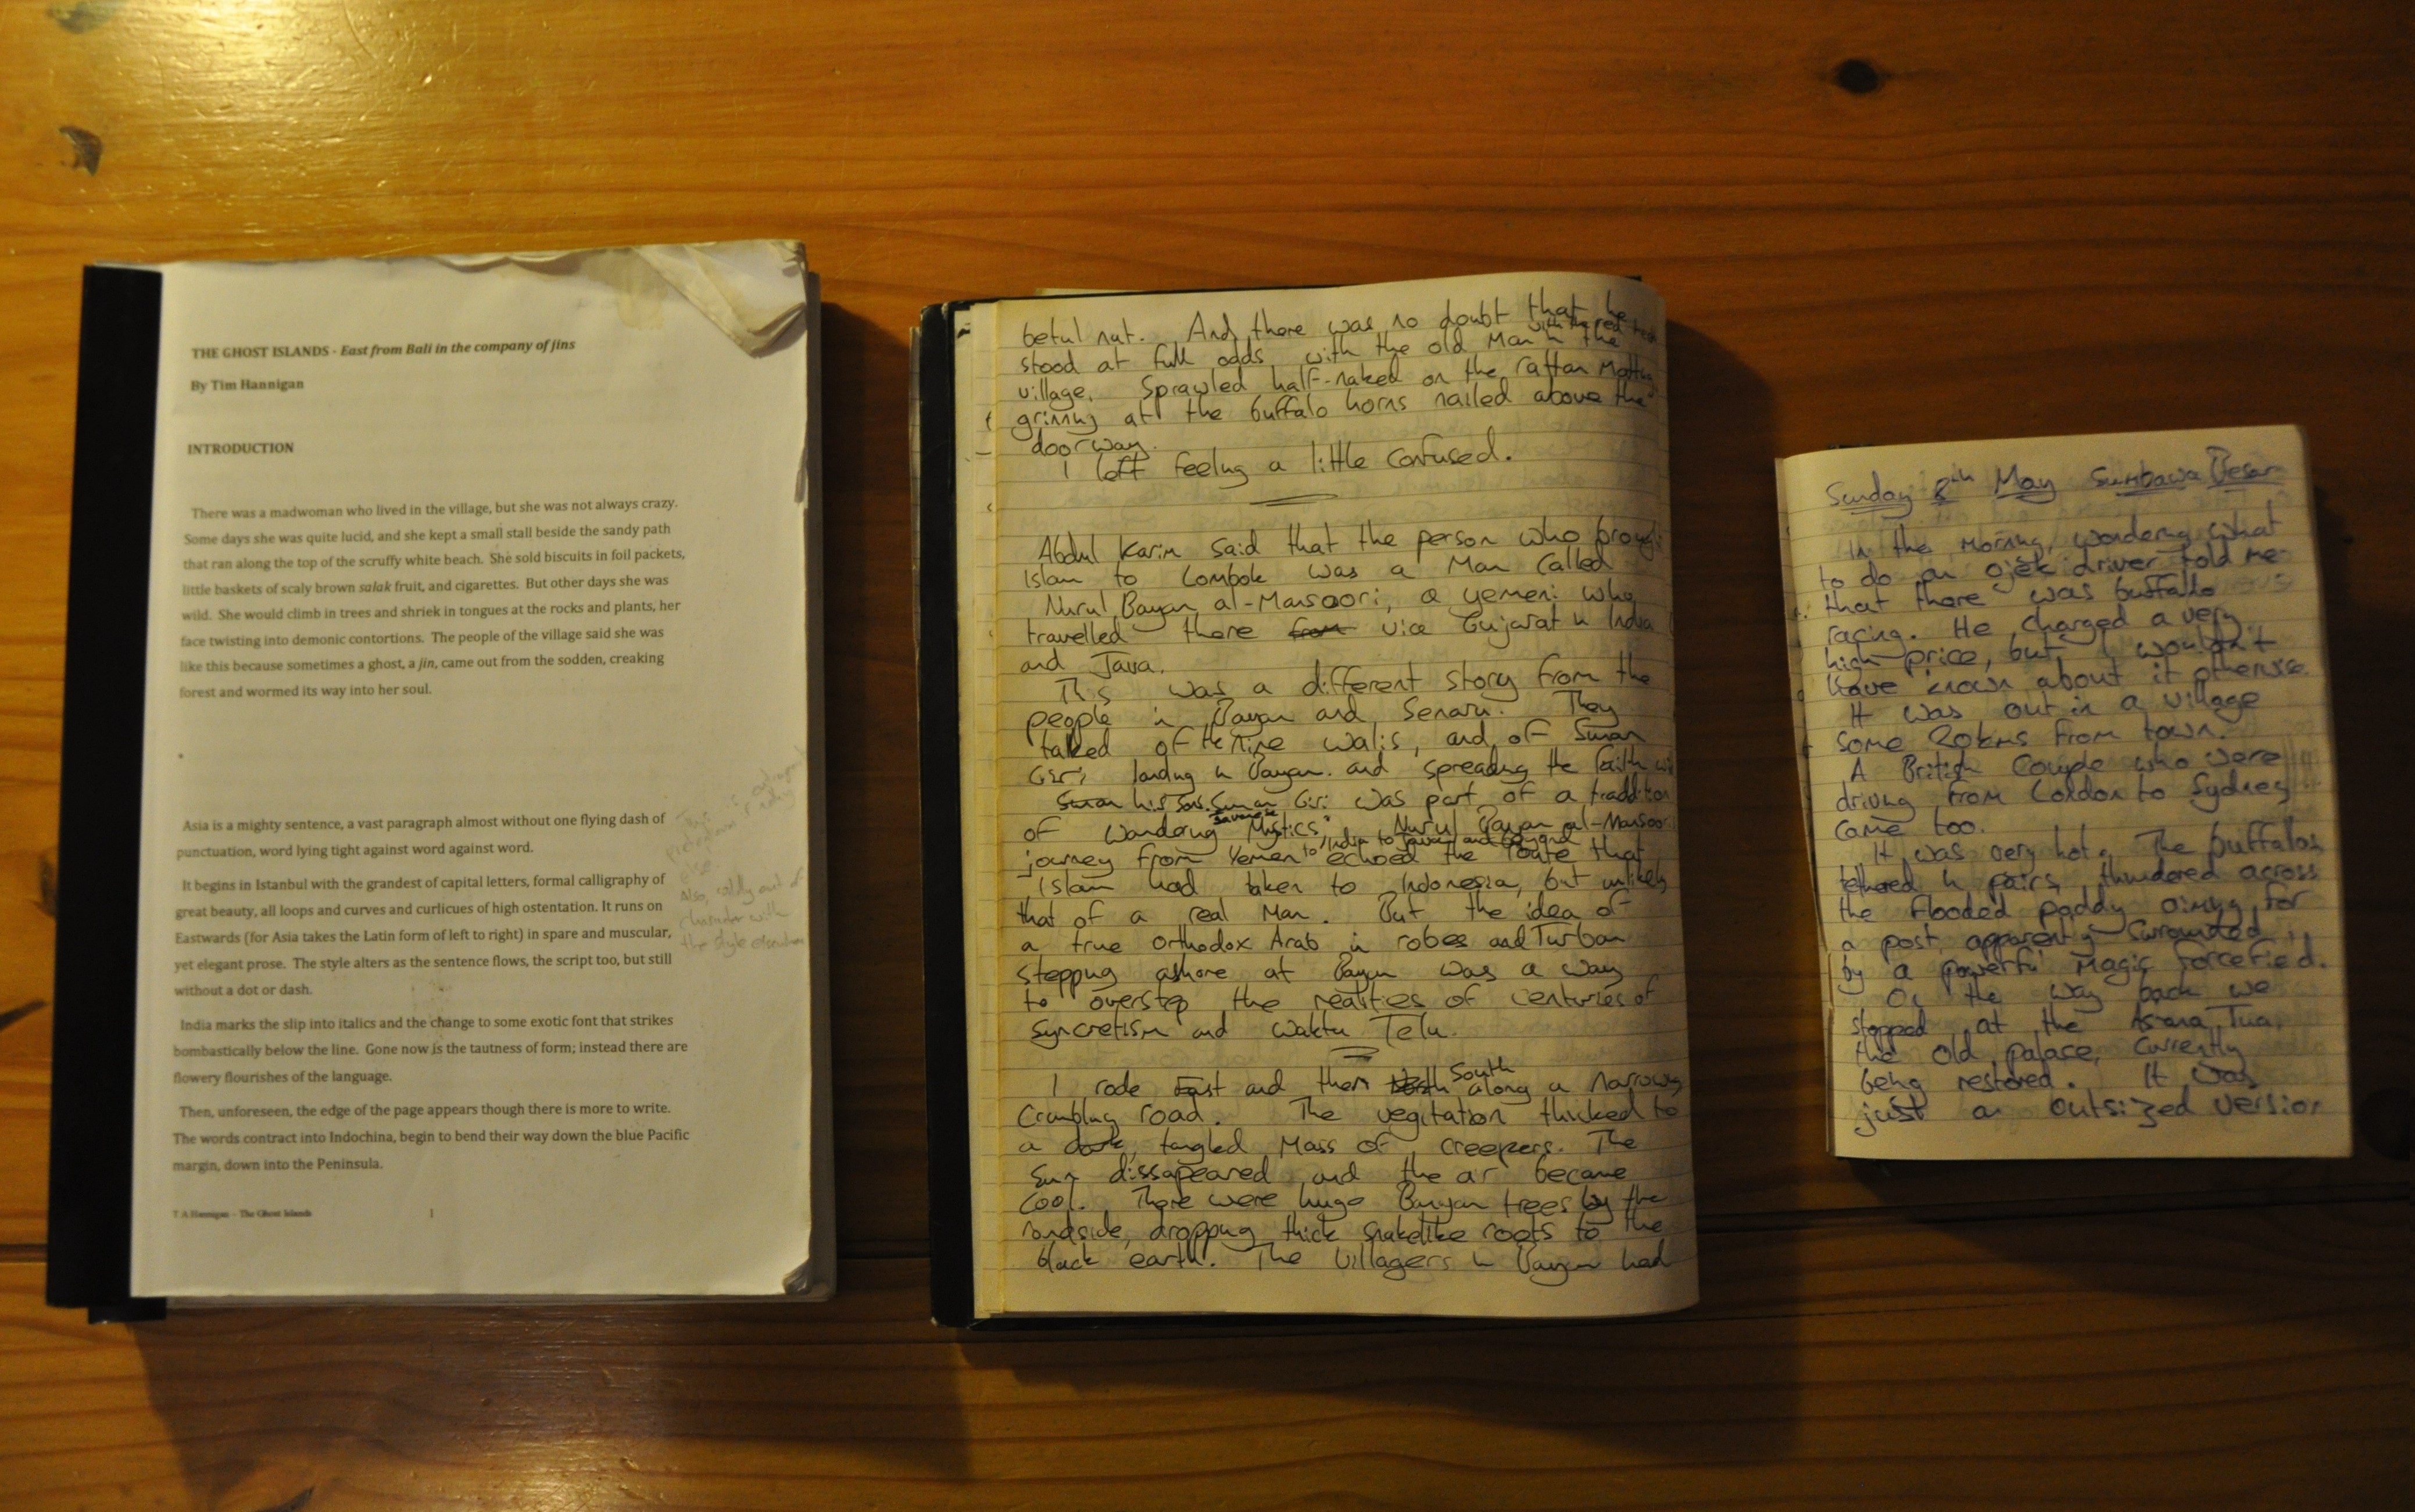 THE GHOST ISLANDS - East from Bali in the company of jins
By Tim Hannigan
INTRODUCTION
There was a madwoman who lived in the village, but she was not always crazy.
Some days she was quite lucid, and she kept a small stall beside the sandy path
that ran along the top of the scruffy white beach. She sold biscuits in foil packets,
little baskets of scaly brown salak fruit, and cigarettes. But other days she was
wild. She would climb in trees and shriek in tongues at the rocks and plants, her
face twisting into demonic contortions. The people of the village said she was
like this because sometimes a ghost, a jin, came out from the sodden, creaking
forest and wormed its way into her soul.
Asia is a mighty sentence, a vast paragraph almost without one flying dash of
punctuation, word lying tight against word against word.
It begins in Istanbul with the grandest of capital letters, formal calligraphy of
great beauty, all loops and curves and curlicues of high ostentation. It runs on
Eastwards (for Asia takes the Latin form of left to right) in spare and muscular,
yet elegant prose. The style alters as the sentence flows, the script too, but still
without a dot or dash.
India marks the slip into italics and the change to some exotic font that strikes
bombastically below the line. Gone now is the tautness of form; instead there are
flowery flourishes of the language.
Then, unforeseen, the edge of the page appears though there is more to write.
The words contract into Indochina, begin to bend their way down the blue Pacific
margin, down into the Peninsula.
T A Hannigan - The Ghost Islands 1
Also, oddly out of
character with
the style
betul nut. And there was no doubt that he
with the red
stood at full odds with the old man in the
village. Sprawled half-naked on the rattan
grinning at the buffalo horns nailed above the
doorway.
I left feeling a little confused.
Abdul Karim said that the person who
Islam to Lombok was a man called
Nurul Bayan al-Mansoori, a yemeni who
travelled there from via Gujarat in India
and Java.
This was a different story from the
people in Bayan and Senaru. They
talked of the nine walis, and of Sunan
Giri landing in Bayan and spreading the faith
Sunan his sons. Sunan Giri was part of a traddition
Javanese
of wandering Mystics. Nurul Bayan al-Mansoori
to India to Java and beyond
journey from Yemen echoed the route that
Islam had taken to Indonesia, but unlikely
that of a real man. But the idea of
a true orthodox Arab in robes and Turban
stepping ashore at Bayan was a way
to overstep the realities of centuries of
syncretism and Waktu Telu.
South
I rode East and then North along a narrow
crumbling road. The vegitation thicked to
a dark, tangled mass of creepers. The
sun dissapeared and the air became
cool. There were huge Banyan trees by the
roadside, dropping thick snakelike roots to the
black earth. The villagers in Bayan had
Sunday 8th May Sumbawa Besar
In the morning, wondering what
to do an ojek driver told me
that there was buffallo
racing. He charged a very
high price, but I wouldn't
have known about it otherwise.
It was out in a village
some 20kms from town.
A British couple who were
driving from London to Sydney
came too.
It was very hot. The buffalos
tethered in pairs, thundered across
the flooded paddy aiming for
a post apparently surrounded
by a powerful magic forcefied.
On the way back we
stopped at the Istana Tua
the old palace, currently
being restored. It was
just an outsized version